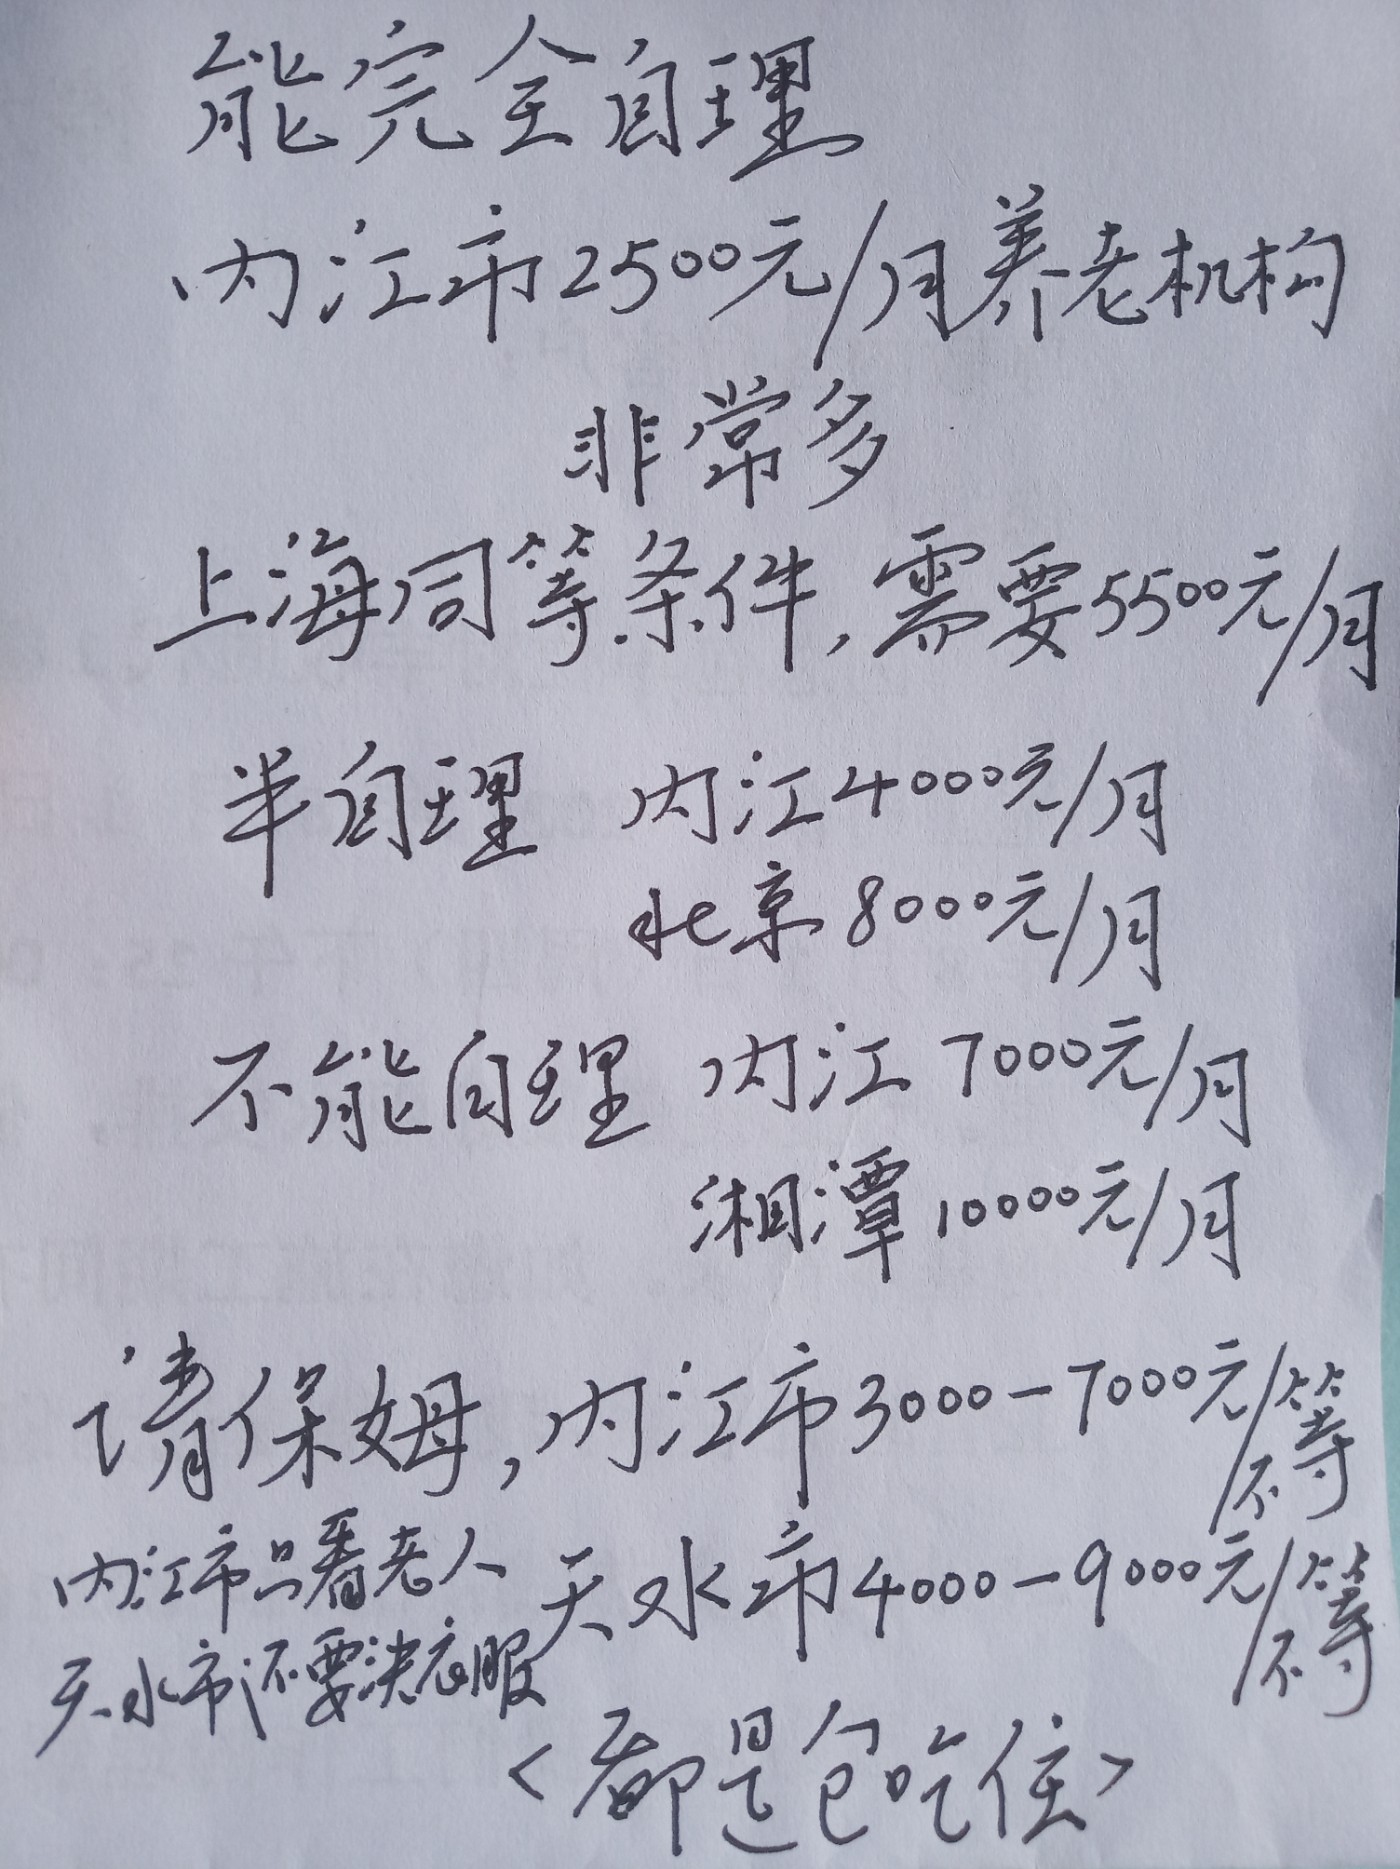 能完全自理
内江市2500元/月养老机构
非常多
上海同等条件,需要5500元/月
半自理 内江4000元/月
北京8000元/月
不能自理 内江7000元/月
湘潭10000元/月
请保姆,内江市3000-7000元/不等
内江市只看老人 天水市4000-9000元/不等
天水市还要洗衣服
<都是包吃住>